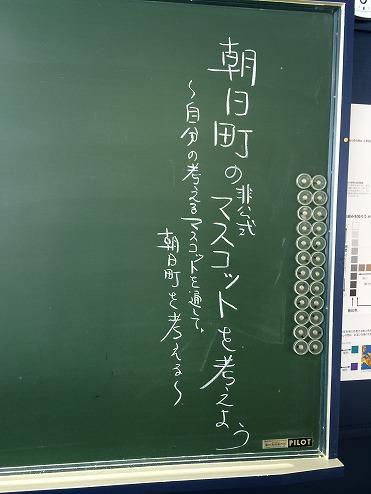 朝日町の非公式マスコットを考えよう
〜自分の考えるマスコットを通して、
朝日町を考える〜
PILOT